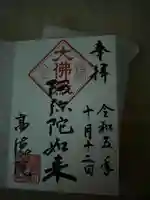 奉拝
令和五年
十月十二日
大佛
阿弥陀如来
高徳院